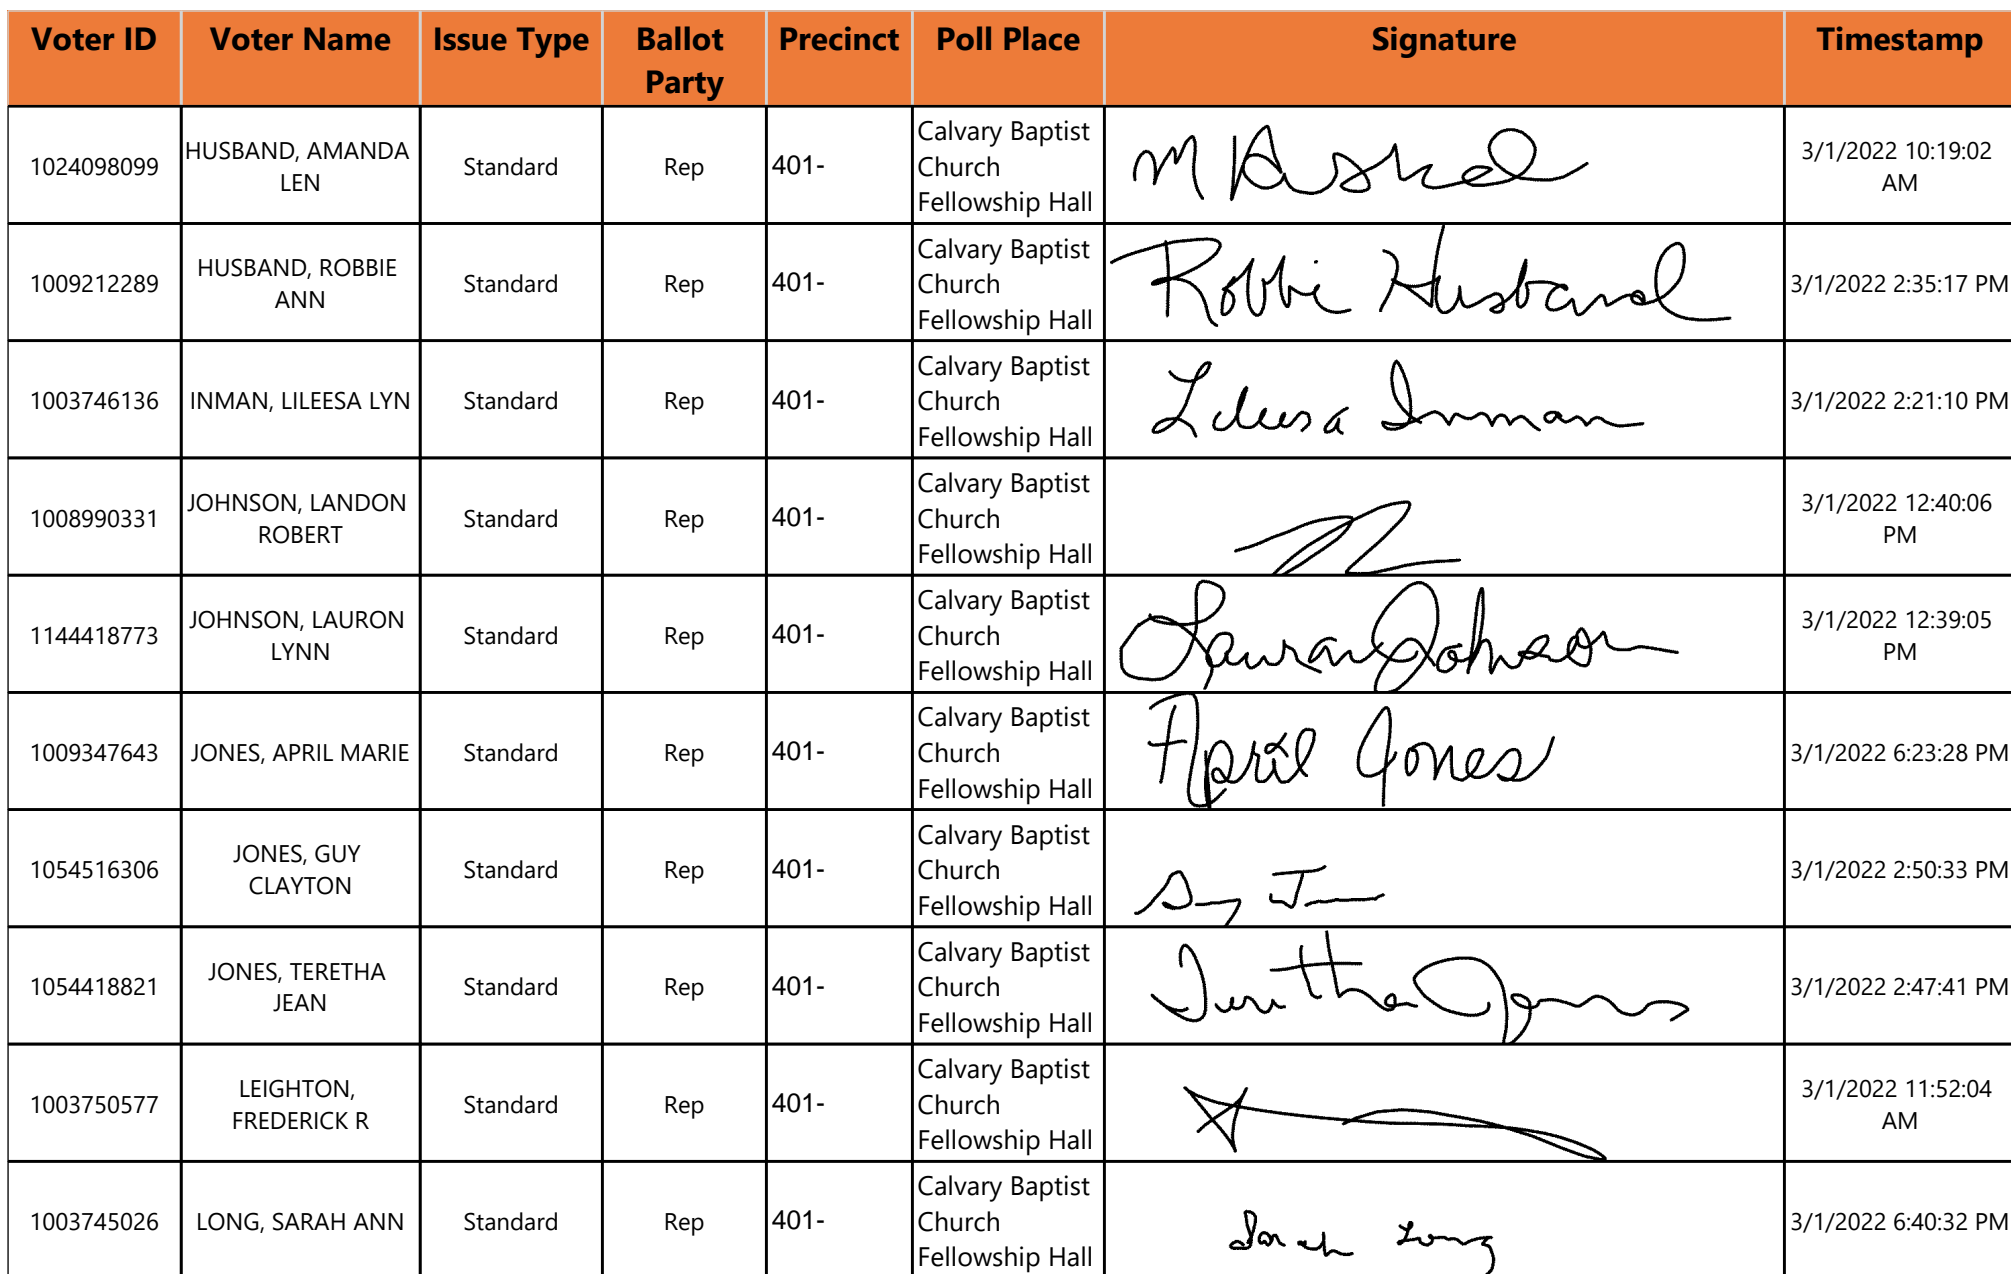 Voter ID Voter Name Issue Type Ballot Party Precinct Poll Place Signature Timestamp
1024098099 HUSBAND, AMANDA LEN Standard Rep 401- Calvary Baptist Church Fellowship Hall 3/1/2022 10:19:02 AM
1009212289 HUSBAND, ROBBIE ANN Standard Rep 401- Calvary Baptist Church Fellowship Hall Robbi Husband 3/1/2022 2:35:17 PM
1003746136 INMAN, LILEESA LYN Standard Rep 401- Calvary Baptist Church Fellowship Hall Lileesa Inman 3/1/2022 2:21:10 PM
1008990331 JOHNSON, LANDON ROBERT Standard Rep 401- Calvary Baptist Church Fellowship Hall 3/1/2022 12:40:06 PM
1144418773 JOHNSON, LAURON LYNN Standard Rep 401- Calvary Baptist Church Fellowship Hall Lauron Johnson 3/1/2022 12:39:05 PM
1009347643 JONES, APRIL MARIE Standard Rep 401- Calvary Baptist Church Fellowship Hall April Jones 3/1/2022 6:23:28 PM
1054516306 JONES, GUY CLAYTON Standard Rep 401- Calvary Baptist Church Fellowship Hall 3/1/2022 2:50:33 PM
1054418821 JONES, TERETHA JEAN Standard Rep 401- Calvary Baptist Church Fellowship Hall Teretha Jones 3/1/2022 2:47:41 PM
1003750577 LEIGHTON, FREDERICK R Standard Rep 401- Calvary Baptist Church Fellowship Hall 3/1/2022 11:52:04 AM
1003745026 LONG, SARAH ANN Standard Rep 401- Calvary Baptist Church Fellowship Hall Sarah Long 3/1/2022 6:40:32 PM